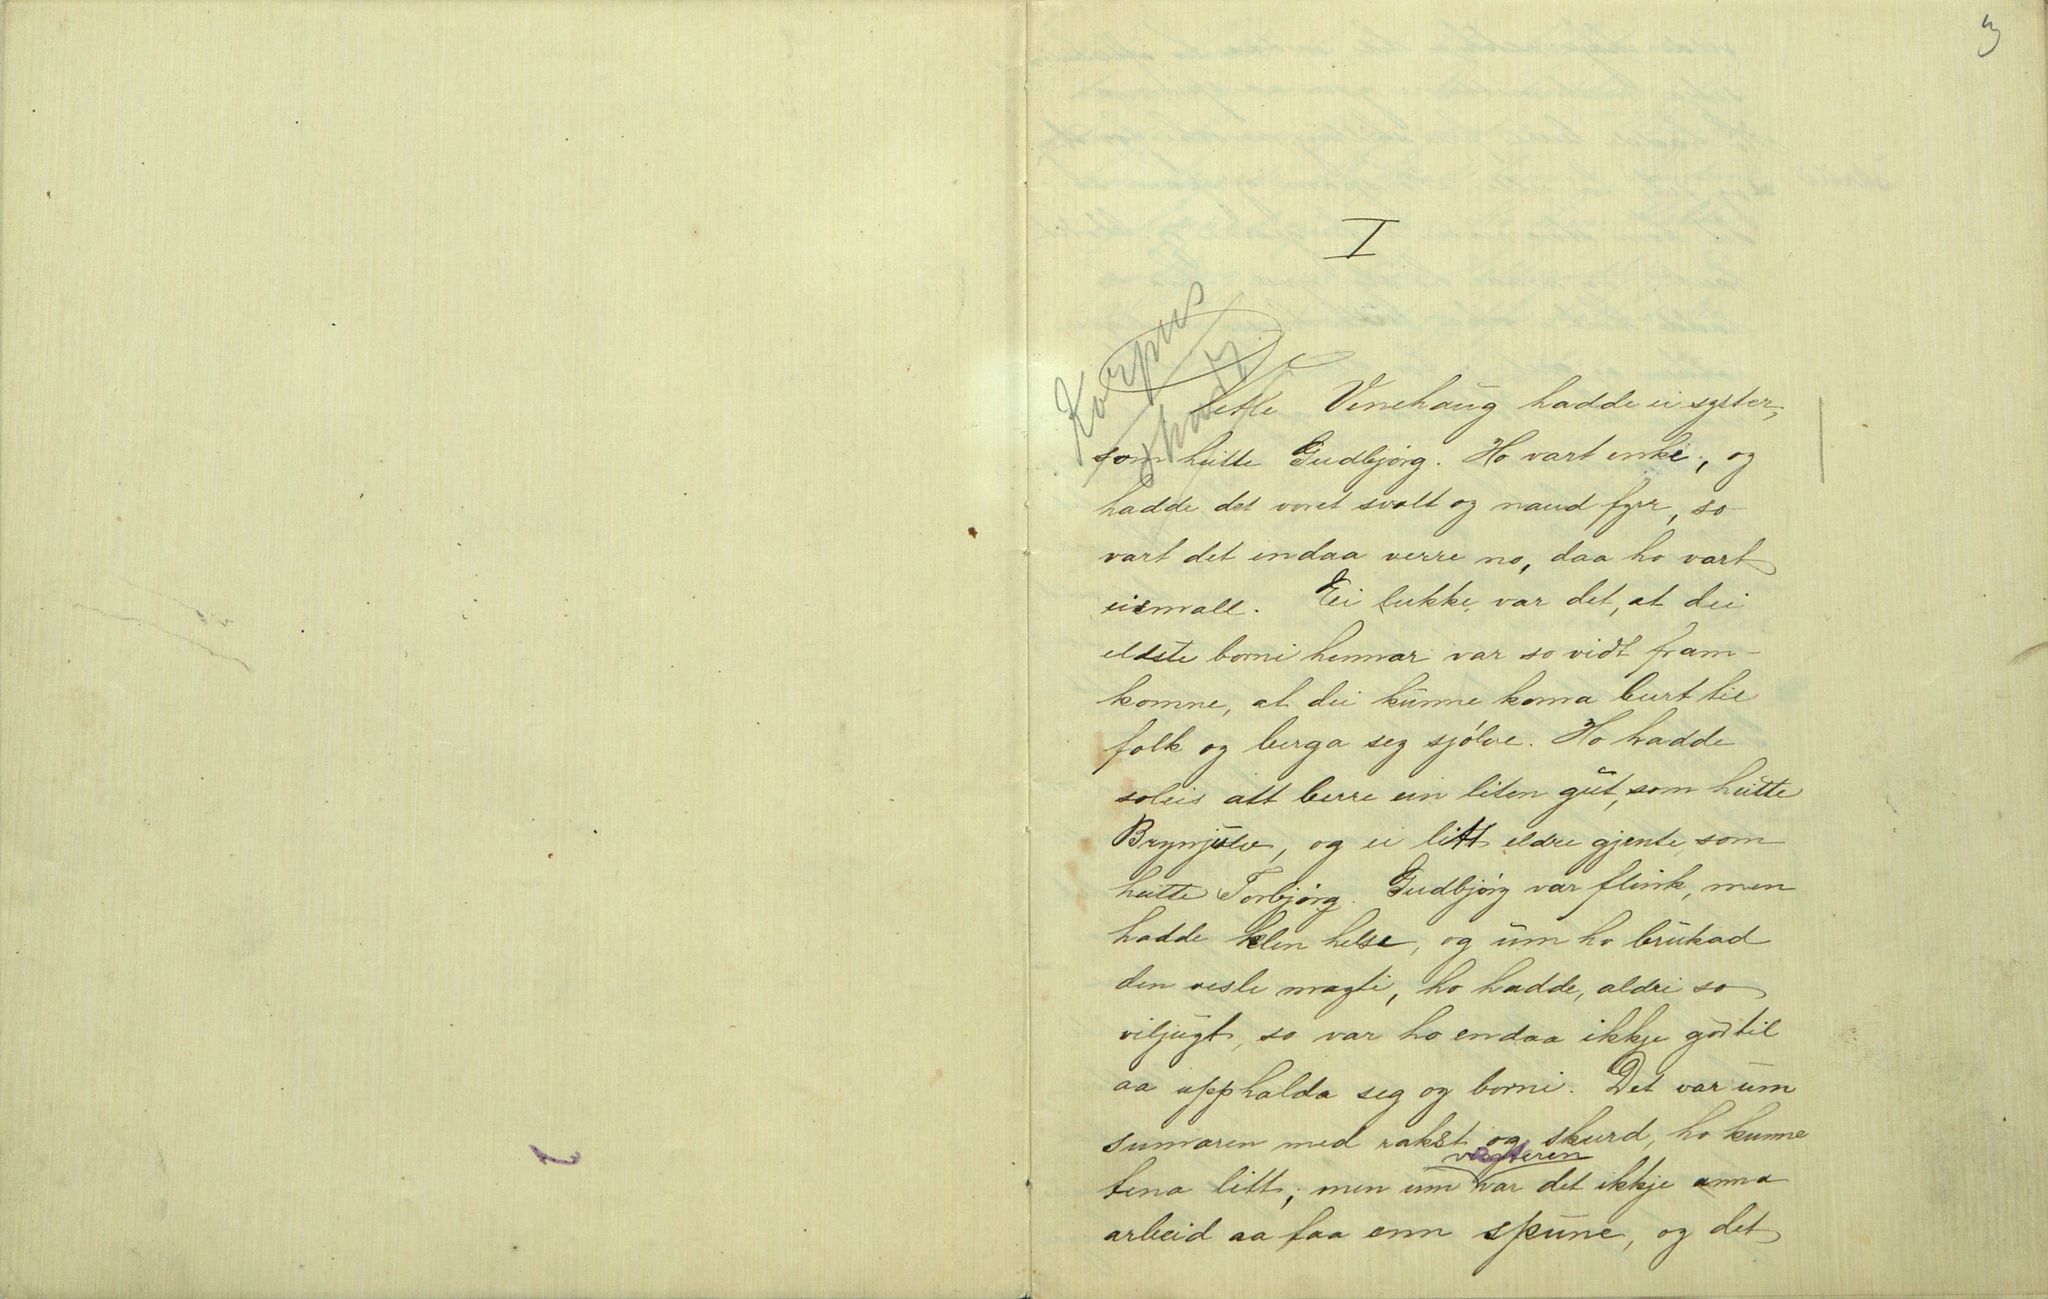 3
I
Korpus
Vetle Vinehaug hadde ei syster,
som heitte Gudbjørg. Ho vart enkje, og
hadde det voret svolt og naud fyrr, so
vart det endaa verre no, daa ho vart
eismall. Ei lukke var det, at dei
eldste borni hennar var so vidt fram-
komne, at dei kunne koma burt til
folk og berga seg sjølve. Ho hadde
soleis att berre ein liten gut, som heitte
Brynjulv, og ei litt eldre gjente, som
heitte Torbjørg. Gudbjørg var flink, men
hadde klen helse, og um ho brukad
den vesle magti, ho hadde, aldri so
viljugt, so var ho endaa ikkje god til
aa upphalda seg og borni. Det var um
sumaren med rakst og skurd, ho kunne
tena litt; men um vinteren var det ikkje anna
arbeid aa faa enn spune, og det